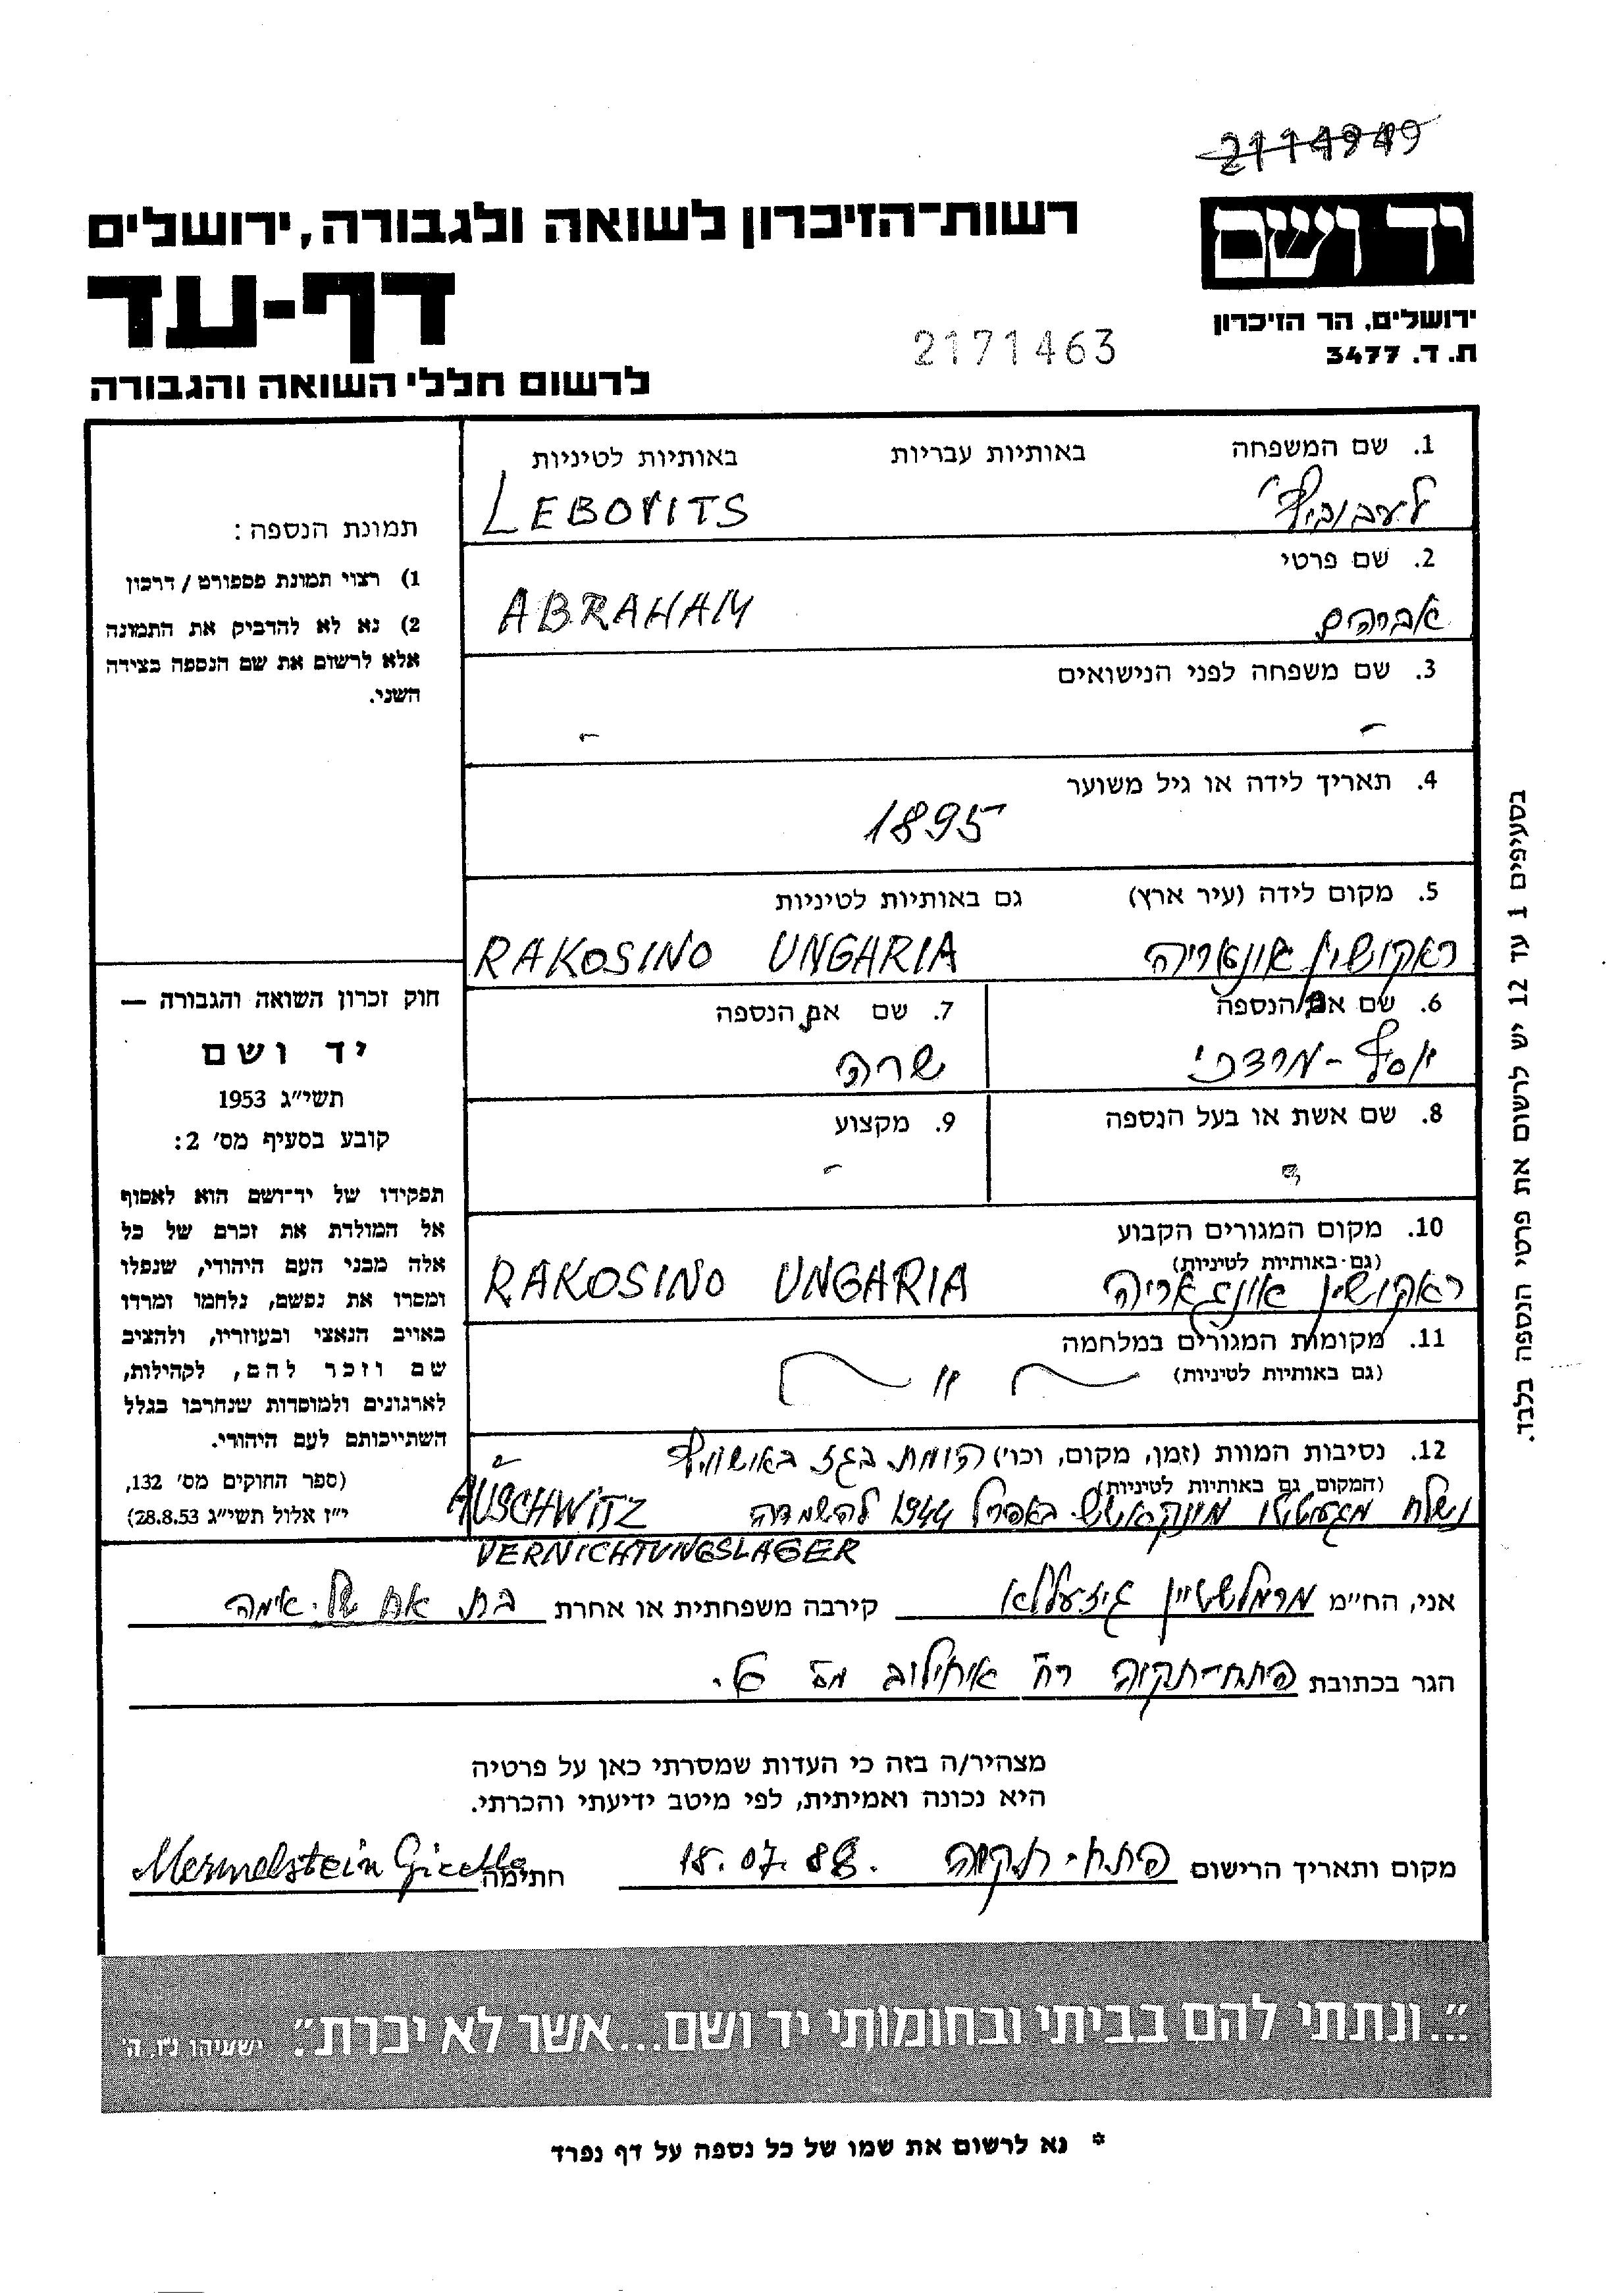 2114949
יד ושם
רשות־הזיכרון לשואה ולגבורה, ירושלים
דף-עד
ירושלים, הר הזיכרון
ת. ד. 3477
2171463
לרשום חללי השואה והגבורה
1. שם המשפחה באותיות עבריות באותיות לטיניות
לעבוביץ LEBOVITS
2. שם פרטי
אברהם ABRAHAM
3. שם משפחה לפני הנישואים
- -
4. תאריך לידה או גיל משוער
1895
5. מקום לידה (עיר ארץ) גם באותיות לטיניות
ראקושין אונגאריה RAKOSINO UNGARIA
6. שם אב הנספה 7. שם אם הנספה
יוסף - מרדכי שרה
8. שם אשת או בעל הנספה 9. מקצוע
-
10. מקום המגורים הקבוע
(גם באותיות לטיניות)
ראקושין אונגאריה RAKOSINO UNGARIA
11. מקומות המגורים במלחמה
(גם באותיות לטיניות)
12. נסיבות המוות (זמן, מקום, וכו') הומת בגז באושוויץ
(המקום גם באותיות לטיניות)
נשלח מגעטטו מונקאטש באפריל 1944 להשמדה AUSCHWITZ
VERNICHTUNGSLAGER
תמונת הנספה:
1) רצוי תמונת פספורט / דרכון
2) נא לא להדביק את התמונה
אלא לרשום את שם הנספה בצידה
השני.
חוק זכרון השואה והגבורה —
יד ושם
תשי״ג 1953
קובע בסעיף מס' 2:
תפקידו של יד־ושם הוא לאסוף
אל המולדת את זכרם של כל
אלה מבני העם היהודי, שנפלו
ומסרו את נפשם, נלחמו ומרדו
באויב הנאצי ובעוזריו, ולהציב
שם וזכר להם, לקהילות,
לארגונים ולמוסדות שנחרבו בגלל
השתייכותם לעם היהודי.
(ספר החוקים מס' 132,
י״ז אלול תשי״ג 28.8.53)
בסעיפים 1 עד 12 יש לרשום את פרטי הנספה בלבד.
אני, הח״מ מרמלשטיין גיזעללא קירבה משפחתית או אחרת בת אח של אימה
הגר בכתובת פתח-תקוה רח' איכילוב מס 6.
מצהיר/ה בזה כי העדות שמסרתי כאן על פרטיה
היא נכונה ואמיתית, לפי מיטב ידיעתי והכרתי.
מקום ותאריך הרישום פתח-תקוה 18.07.88. חתימה Mermelstein Gizella
״...ונתתי להם בביתי ובחומותי יד ושם...אשר לא יכרת״. ישעיהו נ״ו, ה'
* נא לרשום את שמו של כל נספה על דף נפרד